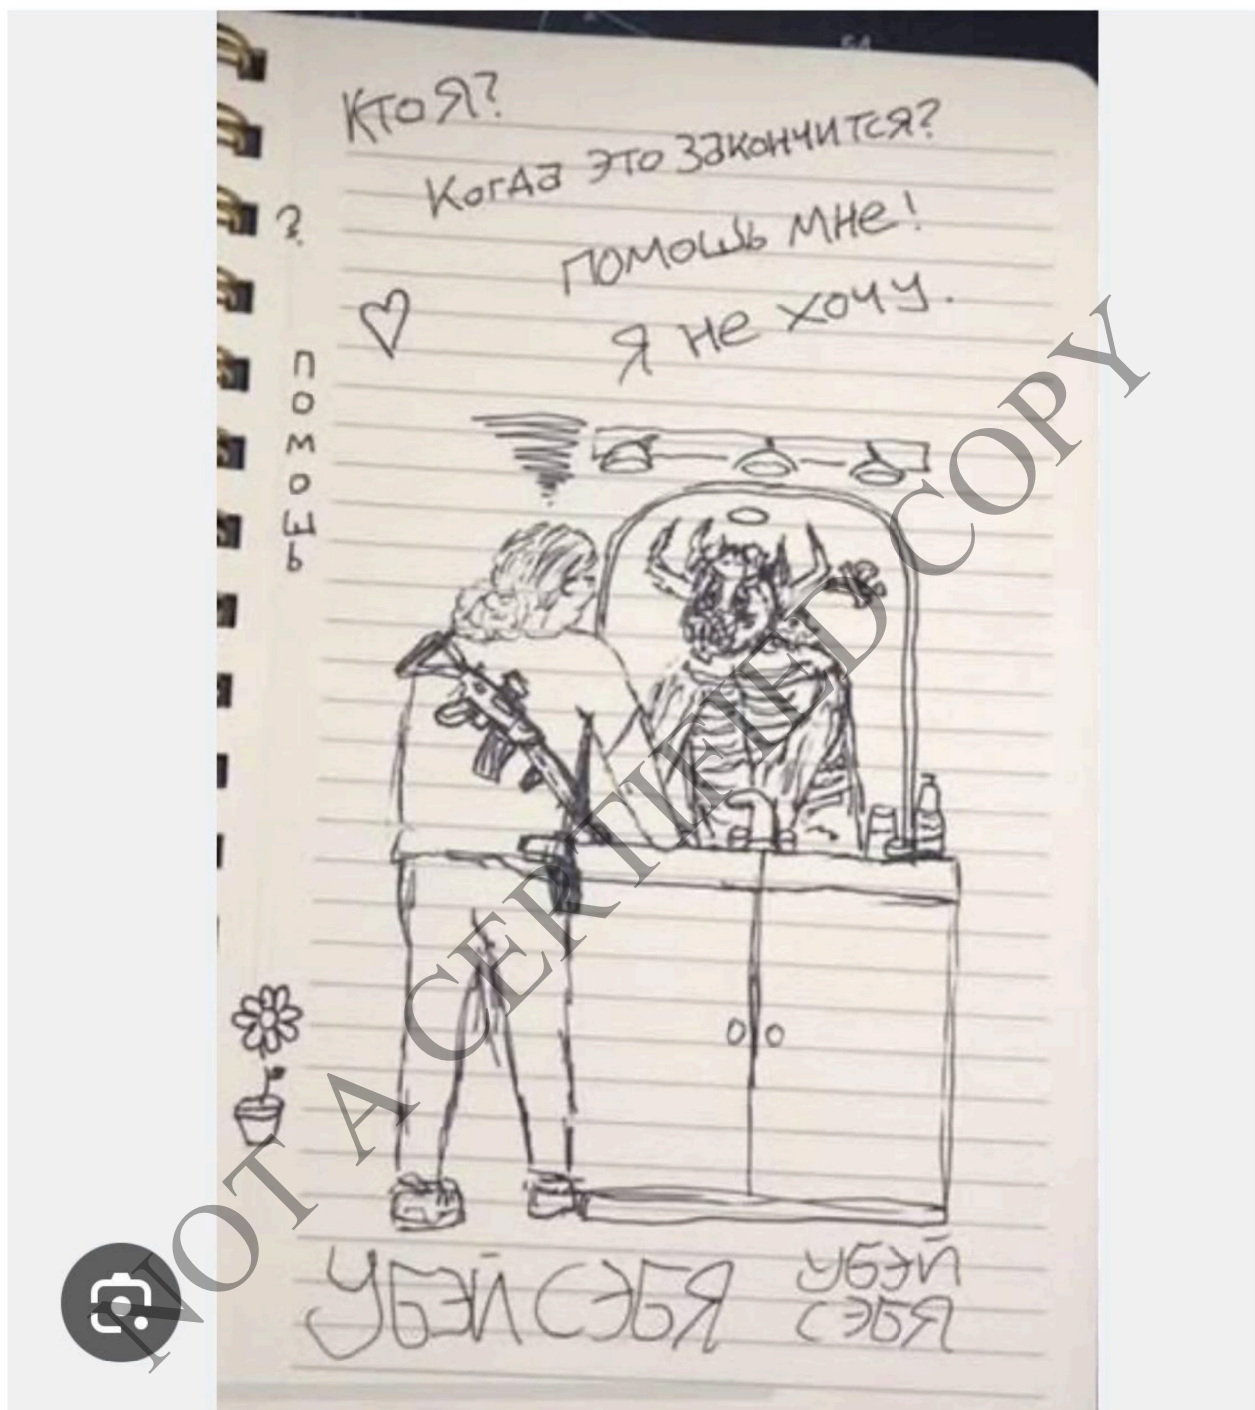 Кто Я?
Когда это закончится?
помошь мне!
Я не хочу.
?
помошь
УБЭЙ СЭБЯ
УБЭЙ
СЭБЯ
NOT A CERTIFIED COPY